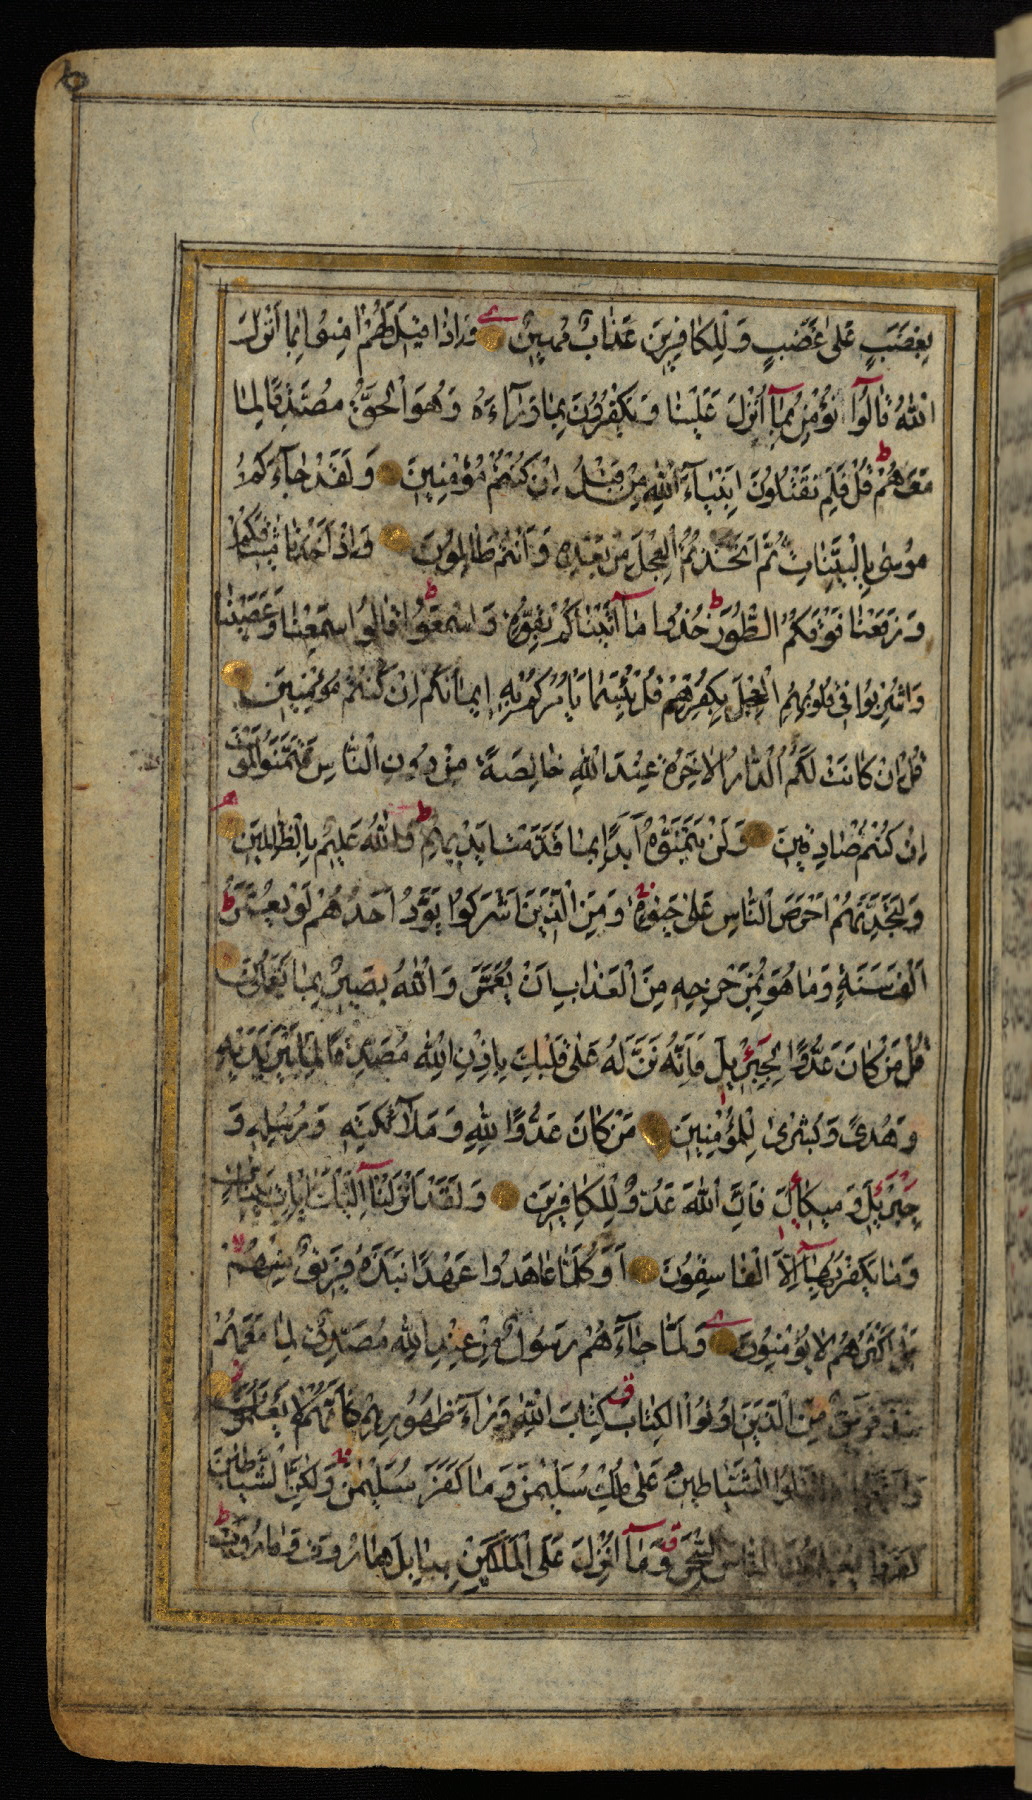 بِغَضَبٍ عَلىٰ غَضَبٍ وَلِلْكٰافِرِينَ عَذٰابٌ مُهِينٌ وَاِذٰا قِيلَ لَهُمْ اٰمِنُوا بِمٰا اَنْزَلَ
اللّٰهُ قٰالُوا نُؤْمِنُ بِمٰا اُنْزِلَ عَلَيْنٰا وَيَكْفُرُونَ بِمٰا وَرٰاءَهُ وَهُوَ الْحَقُّ مُصَدِّقًا لِمٰا
مَعَهُمْ قُلْ فَلِمَ تَقْتُلُونَ اَنْبِيٰاءَ اللّٰهِ مِنْ قَبْلُ اِنْ كُنْتُمْ مُؤْمِنِينَ وَلَقَدْ جٰاءَكُمْ
مُوسٰى بِالْبَيِّنٰاتِ ثُمَّ اتَّخَذْتُمُ الْعِجْلَ مِنْ بَعْدِهِ وَاَنْتُمْ ظٰالِمُونَ وَاِذْ اَخَذْنٰا مِيثٰاقَكُمْ
وَرَفَعْنٰا فَوْقَكُمُ الطُّورَ خُذُوا مٰا اٰتَيْنٰاكُمْ بِقُوَّةٍ وَاسْمَعُوا قٰالُوا سَمِعْنٰا وَعَصَيْنٰا
وَاُشْرِبُوا فِي قُلُوبِهِمُ الْعِجْلَ بِكُفْرِهِمْ قُلْ بِئْسَمٰا يَأْمُرُكُمْ بِهِ اِيمٰانُكُمْ اِنْ كُنْتُمْ مُؤْمِنِينَ
قُلْ اِنْ كٰانَتْ لَكُمُ الدّٰارُ الْاٰخِرَةُ عِنْدَ اللّٰهِ خٰالِصَةً مِنْ دُونِ النّٰاسِ فَتَمَنَّوُا الْمَوْتَ
اِنْ كُنْتُمْ صٰادِقِينَ وَلَنْ يَتَمَنَّوْهُ اَبَدًا بِمٰا قَدَّمَتْ اَيْدِيهِمْ وَاللّٰهُ عَلِيمٌ بِالظّٰالِمِينَ
وَلَتَجِدَنَّهُمْ اَحْرَصَ النّٰاسِ عَلىٰ حَيٰوةٍ وَمِنَ الَّذِينَ اَشْرَكُوا يَوَدُّ اَحَدُهُمْ لَوْ يُعَمَّرُ
اَلْفَ سَنَةٍ وَمٰا هُوَ بِمُزَحْزِحِهِ مِنَ الْعَذٰابِ اَنْ يُعَمَّرَ وَاللّٰهُ بَصِيرٌ بِمٰا يَعْمَلُونَ
قُلْ مَنْ كٰانَ عَدُوًّا لِجِبْرِئِيلَ فَاِنَّهُ نَزَّلَهُ عَلىٰ قَلْبِكَ بِاِذْنِ اللّٰهِ مُصَدِّقًا لِمٰا بَيْنَ يَدَيْهِ
وَهُدًى وَبُشْرىٰ لِلْمُؤْمِنِينَ مَنْ كٰانَ عَدُوًّا لِلّٰهِ وَمَلٰائِكَتِهِ وَرُسُلِهِ وَ
جِبْرِئِيلَ وَمِيكٰائِلَ فَاِنَّ اللّٰهَ عَدُوٌّ لِلْكٰافِرِينَ وَلَقَدْ اَنْزَلْنٰا اِلَيْكَ اٰيٰاتٍ بَيِّنٰاتٍ
وَمٰا يَكْفُرُ بِهٰا اِلَّا الْفٰاسِقُونَ اَوَكُلَّمٰا عٰاهَدُوا عَهْدًا نَبَذَهُ فَرِيقٌ مِنْهُمْ
بَلْ اَكْثَرُهُمْ لٰا يُؤْمِنُونَ وَلَمّٰا جٰاءَهُمْ رَسُولٌ مِنْ عِنْدِ اللّٰهِ مُصَدِّقٌ لِمٰا مَعَهُمْ
نَبَذَ فَرِيقٌ مِنَ الَّذِينَ اُوتُوا الْكِتٰابَ كِتٰابَ اللّٰهِ وَرٰاءَ ظُهُورِهِمْ كَاَنَّهُمْ لٰا يَعْلَمُونَ
تَتْلُوا الشَّيٰاطِينُ عَلىٰ مُلْكِ سُلَيْمٰنَ وَمٰا كَفَرَ سُلَيْمٰنُ وَلٰكِنَّ الشَّيٰاطِينَ
كَفَرُوا يُعَلِّمُونَ النّٰاسَ السِّحْرَ وَمٰا اُنْزِلَ عَلَى الْمَلَكَيْنِ بِبٰابِلَ هٰارُوتَ وَمٰارُوتَ